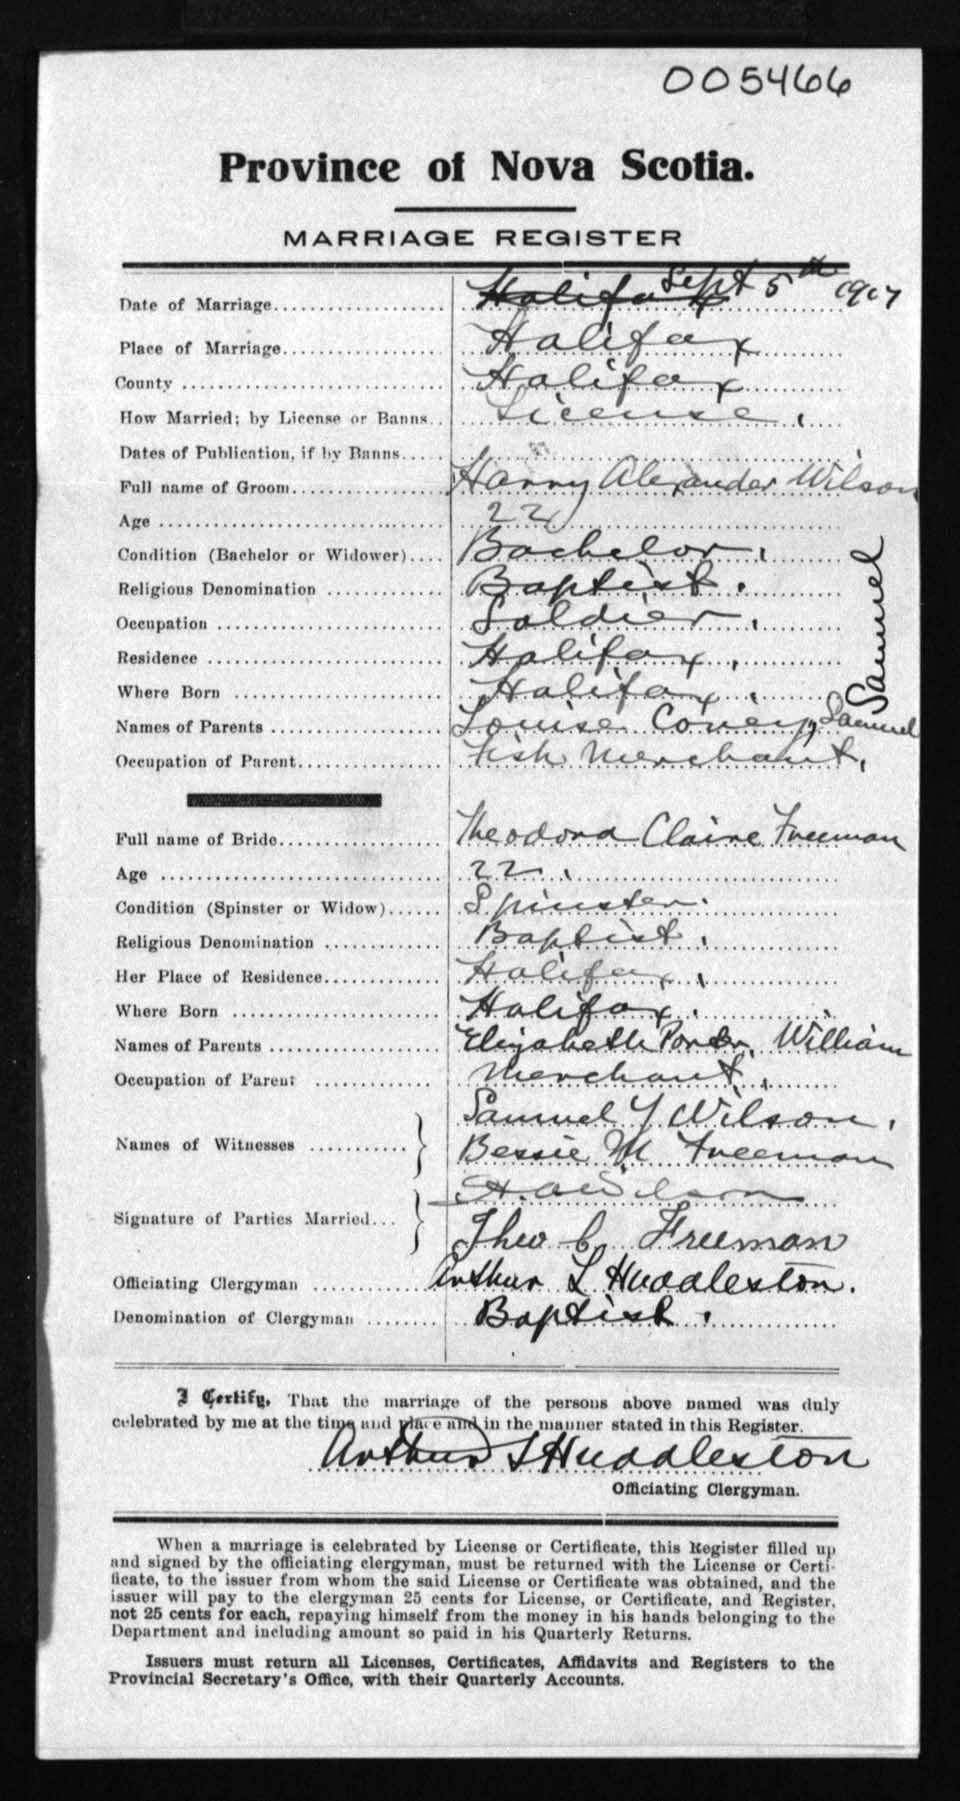 005466
Province of Nova Scotia.
MARRIAGE REGISTER
Date of Marriage Halifax Sept 5th 1917
Place of Marriage Halifax
County Halifax
How Married; by License or Banns License.
Dates of Publication, if by Banns
Full name of Groom Harry Alexander Wilson
Age 22
Condition (Bachelor or Widower) Bachelor.
Religious Denomination Baptist.
Occupation Soldier.
Residence Halifax.
Where Born Halifax.
Samuel
Names of Parents Louise Samuel
Occupation of Parent Fish Merchant.
Full name of Bride Theodora Claire Freeman
Age 22.
Condition (Spinster or Widow) Spinster.
Religious Denomination Baptist.
Her Place of Residence Halifax.
Where Born Halifax.
Names of Parents Elizabeth Porter, William
Occupation of Parent Merchant.
Samuel Y Wilson.
Names of Witnesses
Bessie M Freeman
H. A Wilson
Signature of Parties Married
Theo C. Freeman
Officiating Clergyman Arthur L Huddleston.
Denomination of Clergyman Baptist.
I Certify, That the marriage of the persons above named was duly
celebrated by me at the time and place and in the manner stated in this Register.
Arthur L Huddleston
Officiating Clergyman.
When a marriage is celebrated by License or Certificate, this Register filled up
and signed by the officiating clergyman, must be returned with the License or Certi-
ficate, to the issuer from whom the said License or Certificate was obtained, and the
issuer will pay to the clergyman 25 cents for License, or Certificate, and Register,
not 25 cents for each, repaying himself from the money in his hands belonging to the
Department and including amount so paid in his Quarterly Returns.
Issuers must return all Licenses, Certificates, Affidavits and Registers to the
Provincial Secretary's Office, with their Quarterly Accounts.